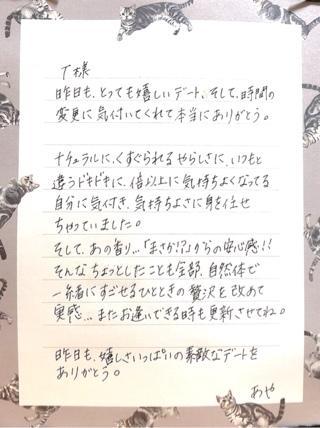 T様
昨日も、とっても嬉しいデート、そして、時間の
変更に気付いてくれて本当にありがとう。
ナチュラルに、くすぐられるやらしさに、いつもと
違うドキドキに、倍以上に気持ちよくなってる
自分に気付き、気持ちよさに身を任せ
ちゃっていました。
そして、あの香り…「まさか!?」からの安心感!!
そんなちょっとしたことも全部、自然体で
一緒にすごせるひとときの贅沢を改めて
実感…またお逢いできる時も更新させてね。
昨日も、嬉しさいっぱいの素敵なデートを
ありがとう。
あや